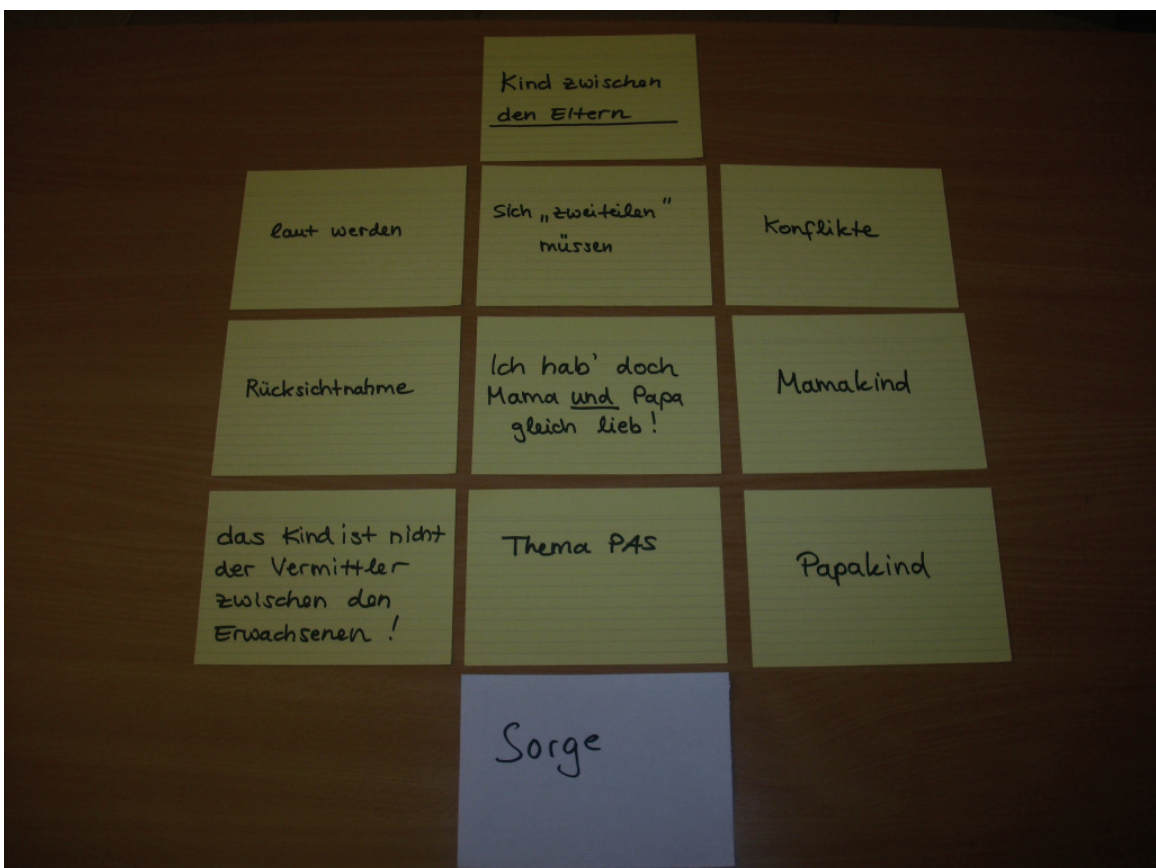 Kind zwischen
den Eltern
laut werden
Sich „zweiteilen"
müssen
Konflikte
Rücksichtnahme
Ich hab' doch
Mama und Papa
gleich lieb!
Mamakind
das Kind ist nicht
der Vermittler
zwischen den
Erwachsenen!
Thema PAS
Papakind
Sorge